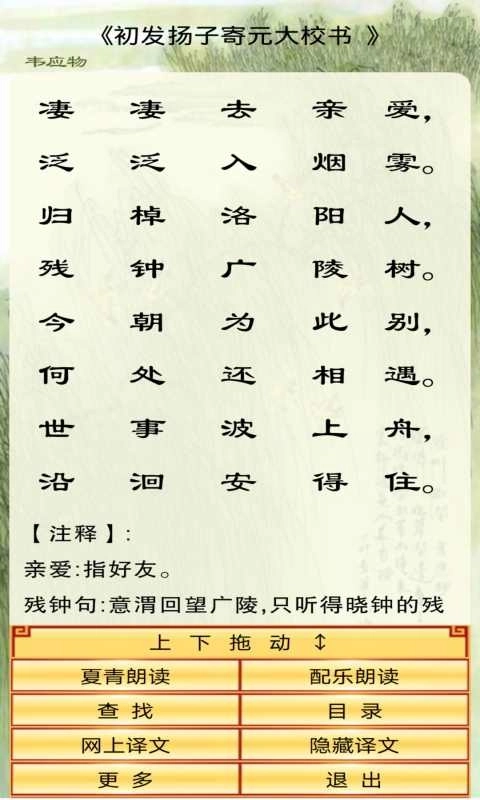 《初发扬子寄元大校书 》
韦应物
凄 凄 去 亲 爱，
泛 泛 入 烟 雾。
归 棹 洛 阳 人，
残 钟 广 陵 树。
今 朝 为 此 别，
何 处 还 相 遇。
世 事 波 上 舟，
沿 洄 安 得 住。
【注释】:
亲爱:指好友。
残钟句:意渭回望广陵,只听得晓钟的残
上 下 拖 动 ↕
夏青朗读 配乐朗读
查 找 目 录
网上译文 隐藏译文
更 多 退 出